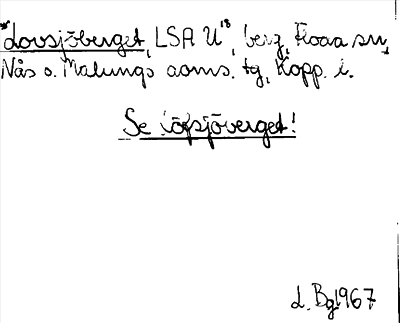 *Lovsjöberget, LSA U¹⁸, berg, Floda sn,
Nås o. Malungs doms. tg, Kopp. l.
Se Löfsjöberget!
L. Bg 1967